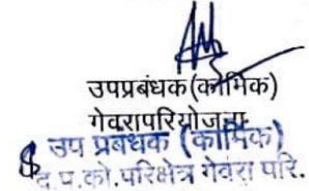 उपप्रबंधक(कार्मिक)
गेवरापरियोजना
उप प्रबंधक (कार्मिक)
द.पू.को.परिक्षेत्र गेवरा परि.